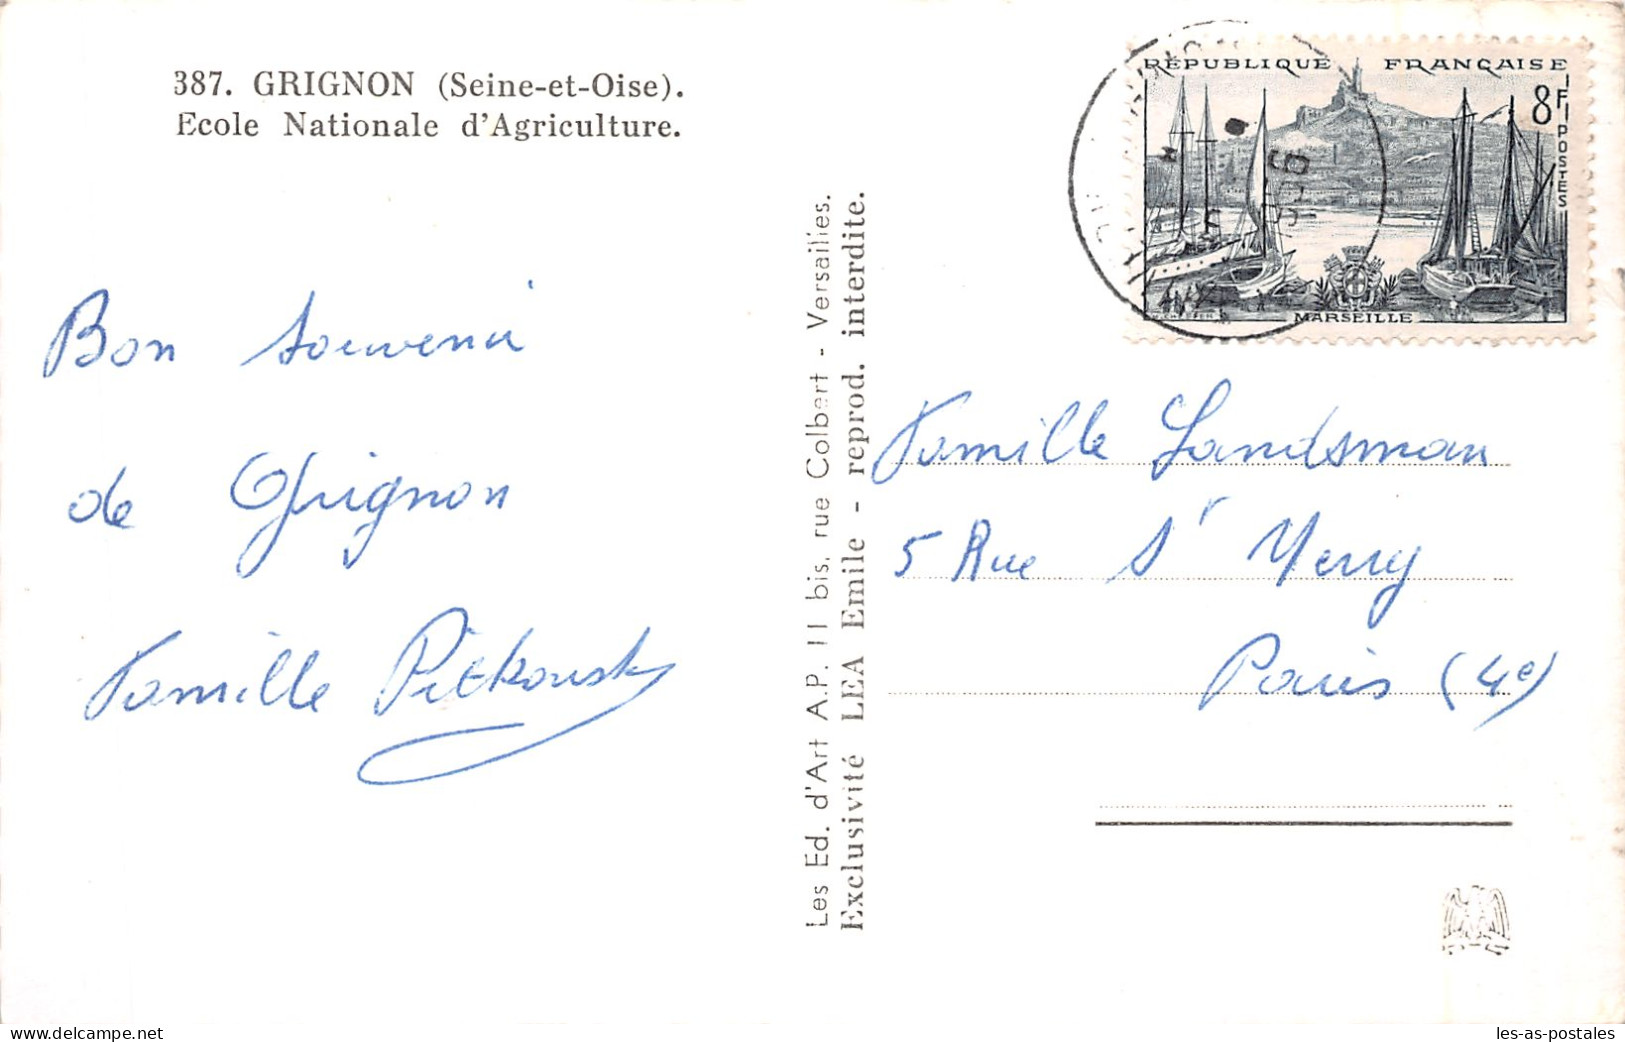 387. GRIGNON (Seine-et-Oise).
Ecole Nationale d'Agriculture.
Bon souvenir
de Grignon
Famille Pitkowsky
Les Ed. d'Art A.P. 11 bis, rue Colbert - Versailles.
Exclusivité LEA Emile - reprod. interdite.
RÉPUBLIQUE FRANÇAISE
8F
POSTES
MARSEILLE
Famille Landsman
5 Rue St Merry
Paris (4e)
delcampe.net
les-as-postales